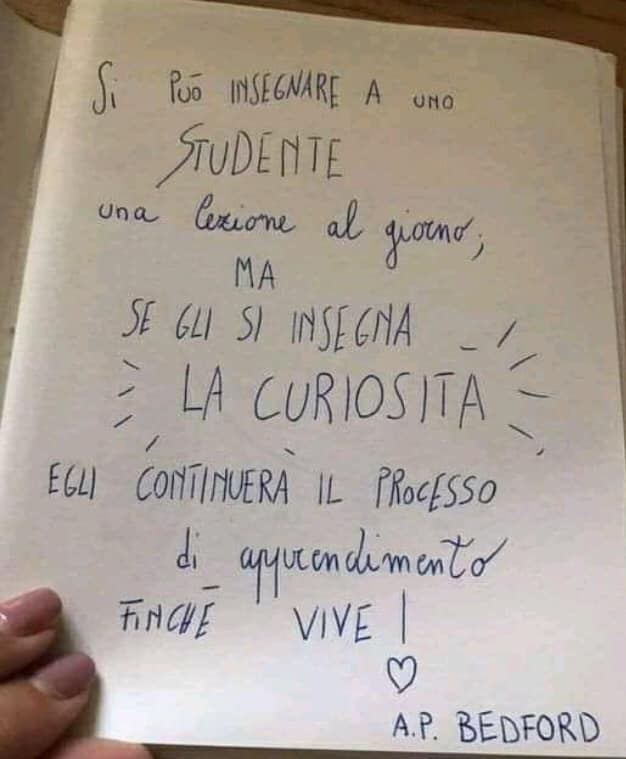 Si PUÒ INSEGNARE A UNO
STUDENTE
una lezione al giorno;
MA
SE GLI SI INSEGNA
LA CURIOSITÀ
EGLI CONTINUERÀ IL PROCESSO
di apprendimento
FINCHÉ VIVE!
A.P. BEDFORD